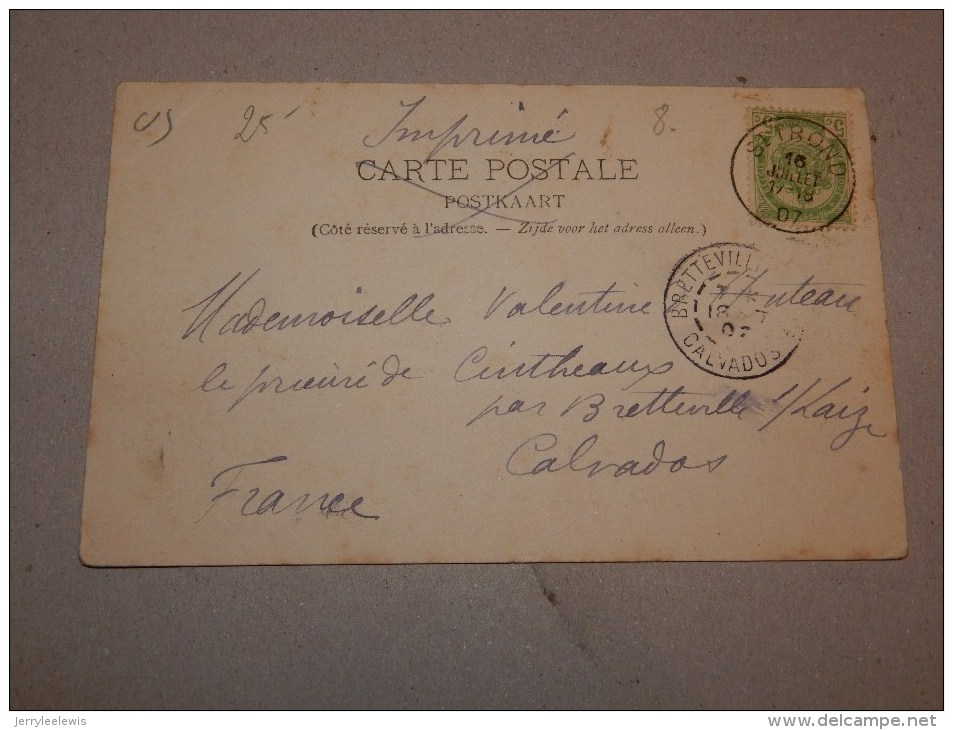 25
Imprimé
8.
CARTE POSTALE
POSTKAART
(Côté réservé à l'adresse. — Zijde voor het adress alleen.)
ST TROND
16
JUILLET
07
BRETTEVILL
18
07
CALVADOS
Mademoiselle Valentine
le prieuré de Cintheaux
par Bretteville s/Laize
Calvados
France
jerryleelewis
www.delcampe.net